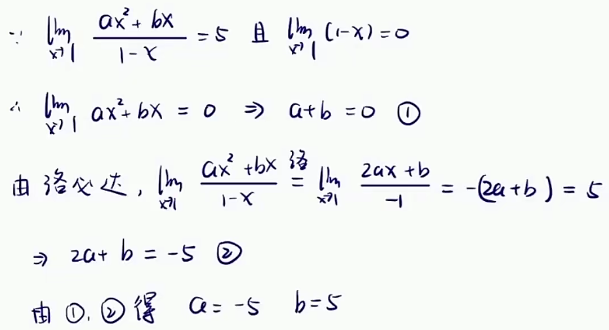 ∵ lim_{x→1} (ax²+bx)/(1-x) = 5 且 lim_{x→1} (1-x) = 0
∴ lim_{x→1} ax²+bx = 0 ⇒ a+b=0 ①
由洛必达, lim_{x→1} (ax²+bx)/(1-x) 洛= lim_{x→1} (2ax+b)/(-1) = -(2a+b) = 5
⇒ 2a+b = -5 ②
由①,②得 a=-5 b=5